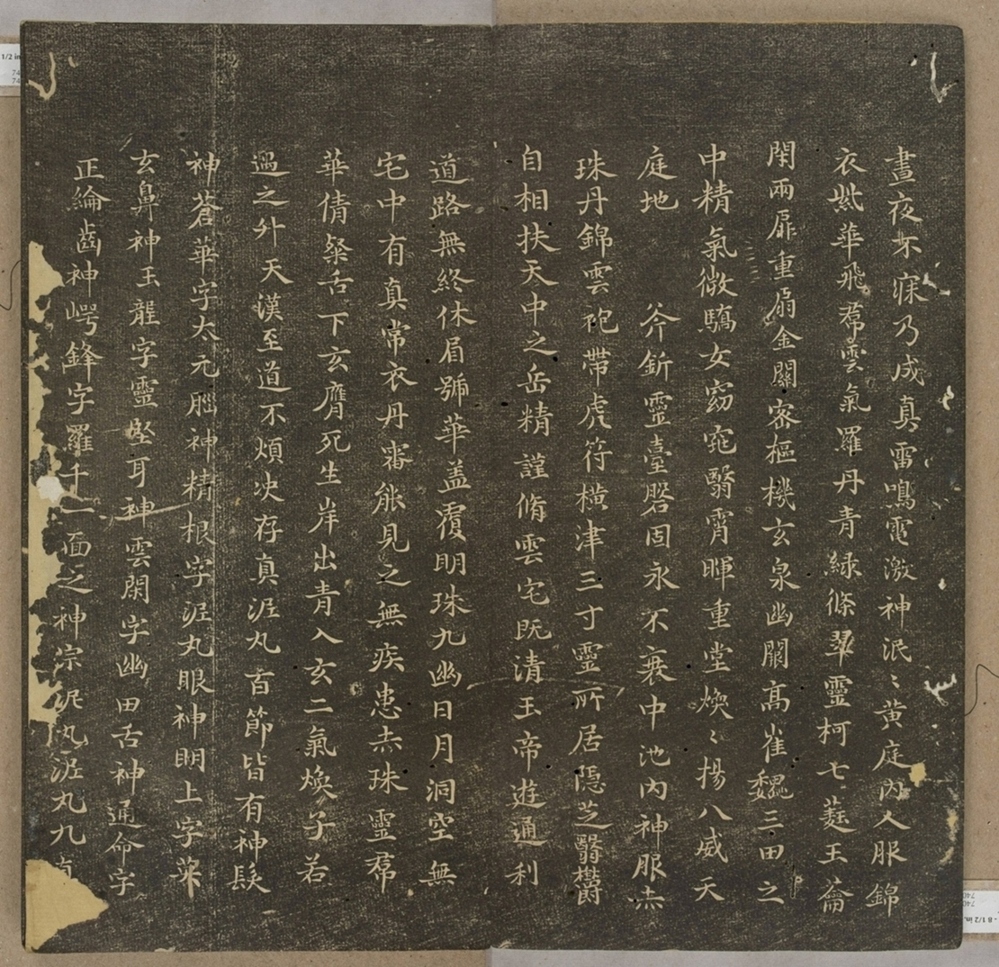 晝夜不寐乃成真雷鳴電激神泯〻黃庭內人服錦
衣紫華飛帬雲氣羅丹青綠條翠靈柯七蕤玉籥
閇兩扉重扇金關密樞機玄泉幽關高崔巍三田之
中精氣微驕女窈窕翳霄暉重堂煥〻揚八威天
庭地 斧釿靈臺盤固永不衰中池內神服赤
珠丹錦雲袍帶虎符橫津三寸靈所居隱芝翳欝
自相扶天中之岳精謹脩雲宅既清玉帝遊通利
道路無終休眉號華蓋覆明珠九幽日月洞空無
宅中有真常衣丹審能見之無疾患赤珠靈帬
華倩粲舌下玄膺死生岸出青入玄二氣煥子若
遇之升天漢至道不煩決存真泥丸百節皆有神髮
神蒼華字太元腦神精根字泥丸眼神明上字英
玄鼻神玉壟字靈堅耳神雲閑字幽田舌神通命字
正綸齒神崿鋒字羅千一面之神宗泥丸泥丸九真
1/2 in
8 1/2 in